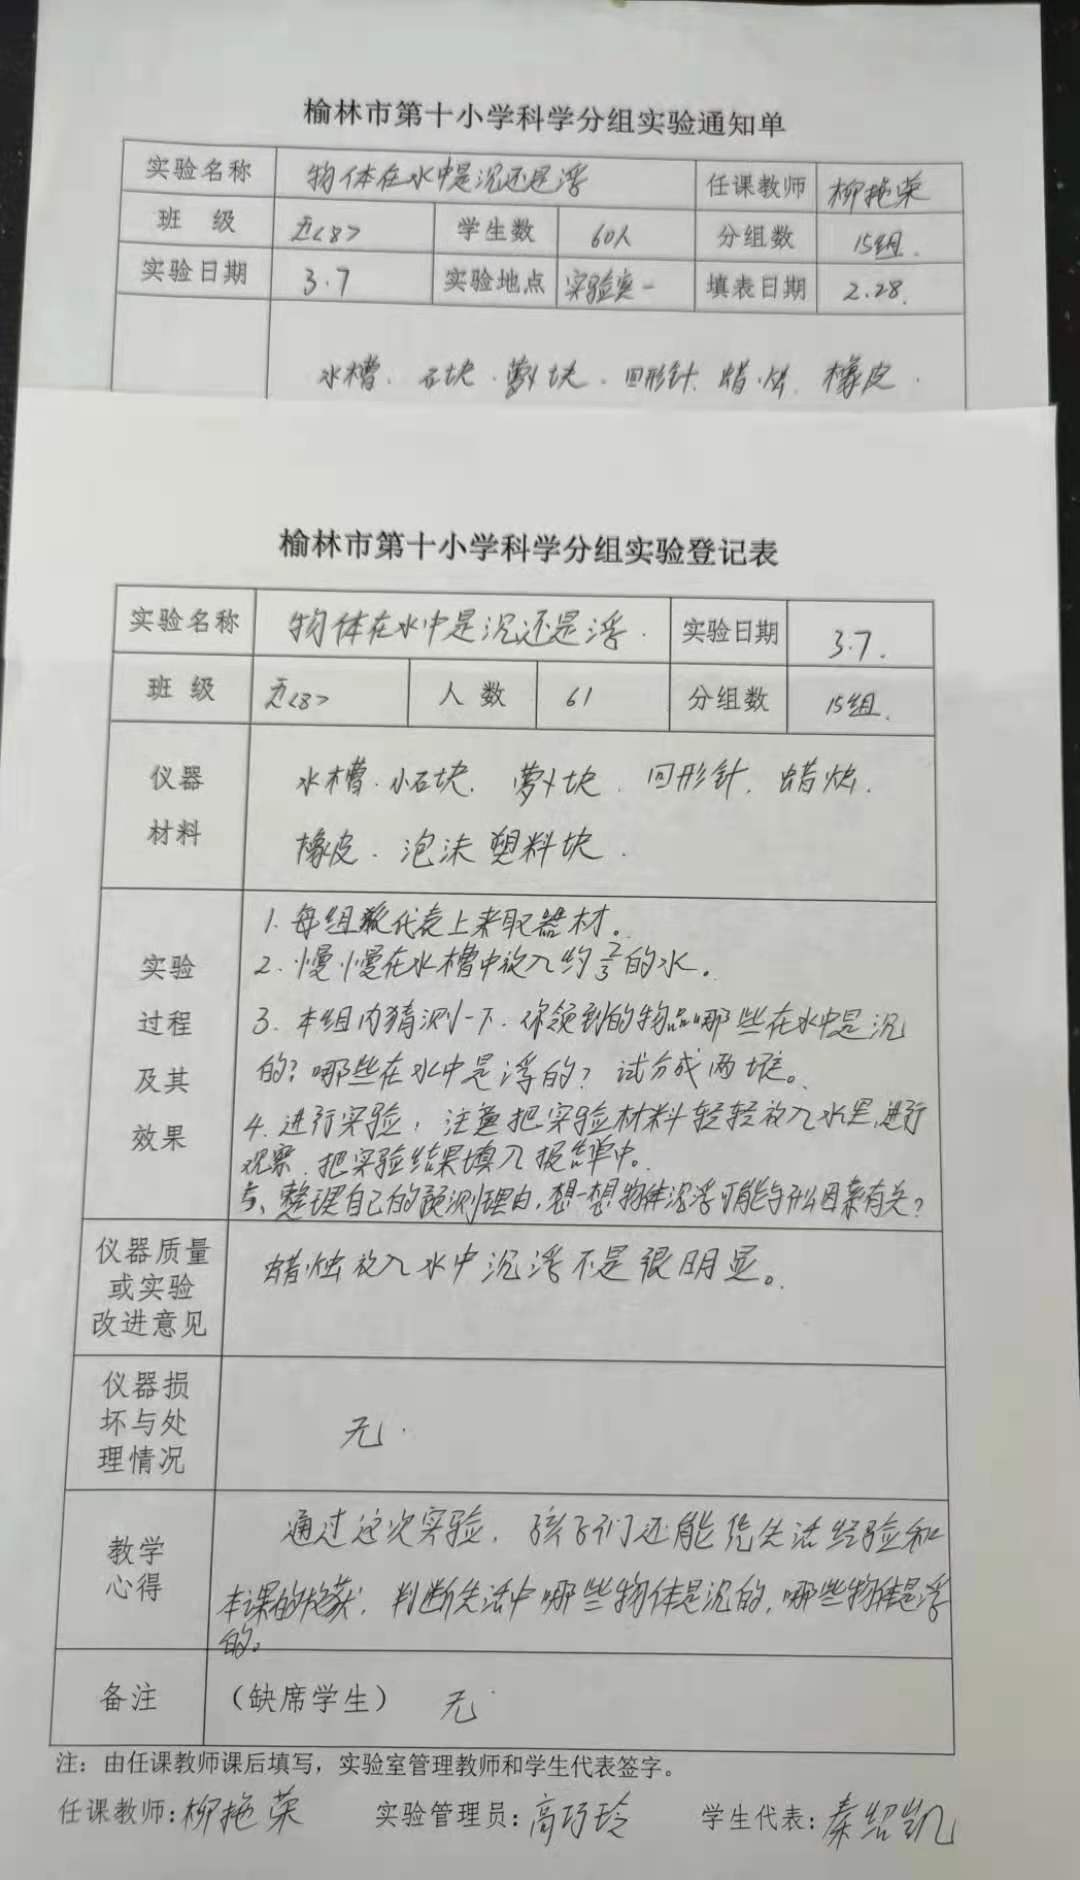 榆林市第十小学科学分组实验通知单
实验名称 物体在水中是沉还是浮 任课教师 柳艳荣
班 级 五<8> 学生数 60人 分组数 15组.
实验日期 3.7 实验地点 实验室一 填表日期 2.28.
水槽. 石块. 萝卜块. 回形针. 蜡烛. 橡皮.
榆林市第十小学科学分组实验登记表
实验名称 物体在水中是沉还是浮. 实验日期 3.7.
班 级 五<8> 人 数 61 分组数 15组.
仪器 水槽. 小石块. 萝卜块. 回形针. 蜡烛.
材料 橡皮. 泡沫塑料块.
1. 每组派代表上来取器材。
实验 2. 慢慢在水槽中放入约2/3的水。
过程 3. 本组内猜测一下. 你领到的物品哪些在水中是沉
及其 的? 哪些在水中是浮的? 试分成两堆。
效果 4. 进行实验, 注意把实验材料轻轻放入水里,进行
观察. 把实验结果填入报告单中。
5、整理自己的预测理由,想一想物体沉浮可能与什么因素有关?
仪器质量 蜡烛放入水中沉浮不是很明显。
或实验
改进意见
仪器损
坏与处 无.
理情况
通过这次实验, 孩子们还能凭生活经验和
教学
心得 本课的收获, 判断生活中哪些物体是沉的, 哪些物体是浮
的。
备注 (缺席学生) 无.
注:由任课教师课后填写,实验室管理教师和学生代表签字。
任课教师:柳艳荣 实验管理员:高巧玲 学生代表:秦绍凯